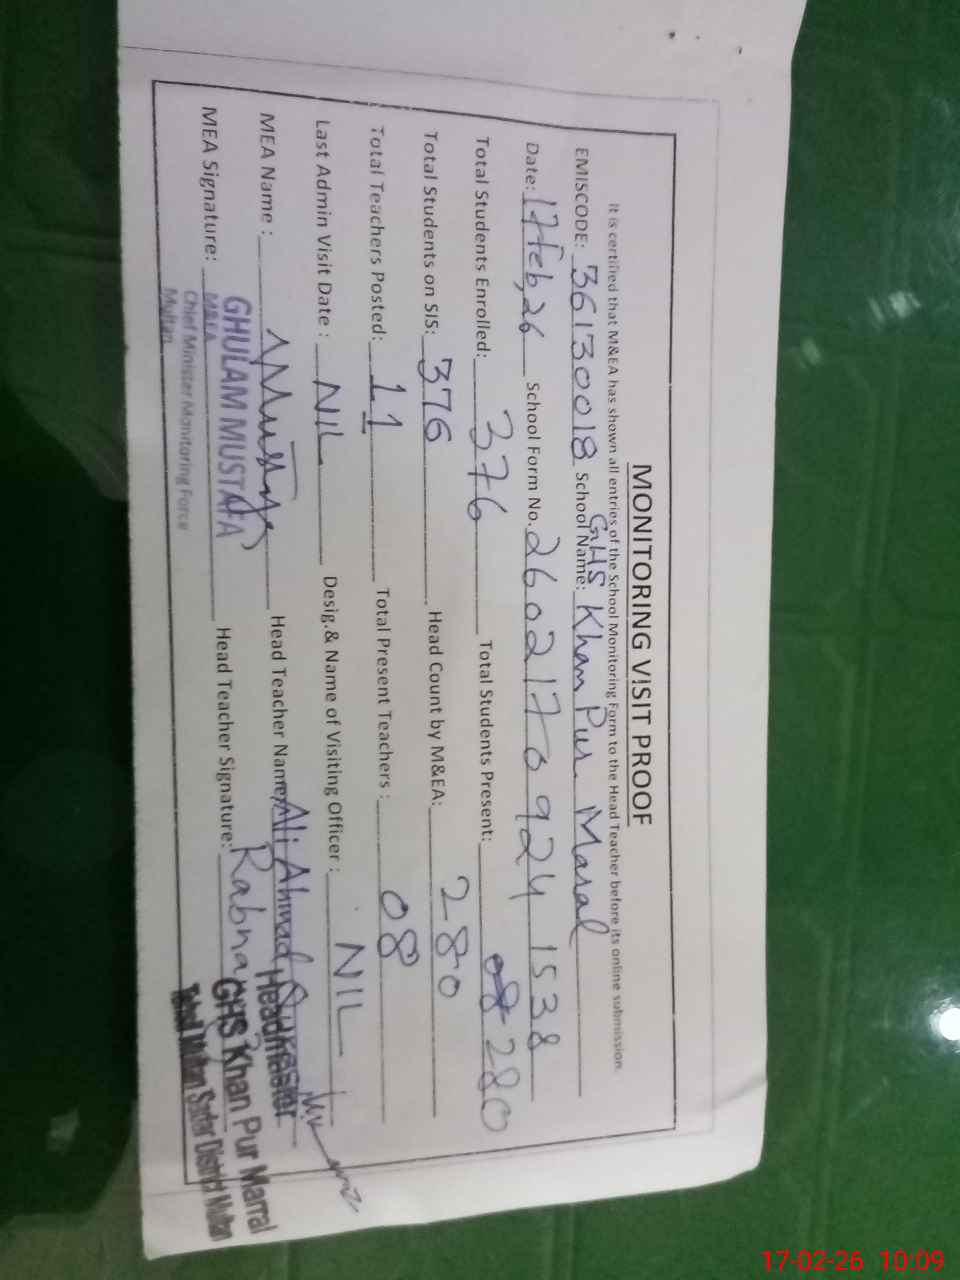 MONITORING VISIT PROOF
It is certified that M&EA has shown all entries of the School Monitoring Form to the Head Teacher before its online submission.
EMISCODE: 36130018 School Name: GHS Khan Pur Maral
Date: 17 Feb, 26 School Form No. 260217092415 38
Total Students Enrolled: 376 Total Students Present: 280
Total Students on SIS: 376 Head Count by M&EA: 280
Total Teachers Posted: 11 Total Present Teachers : 08
Last Admin Visit Date : NIL Desig.& Name of Visiting Officer : NIL
MEA Name : Head Teacher Name: Ali Ahmad
MEA Signature: Head Teacher Signature:
GHULAM MUSTAFA
M&EA
Chief Minister Monitoring Force
Multan
Headmaster
GHS Khan Pur Marral
Sadar District Multan
17-02-26 10:09